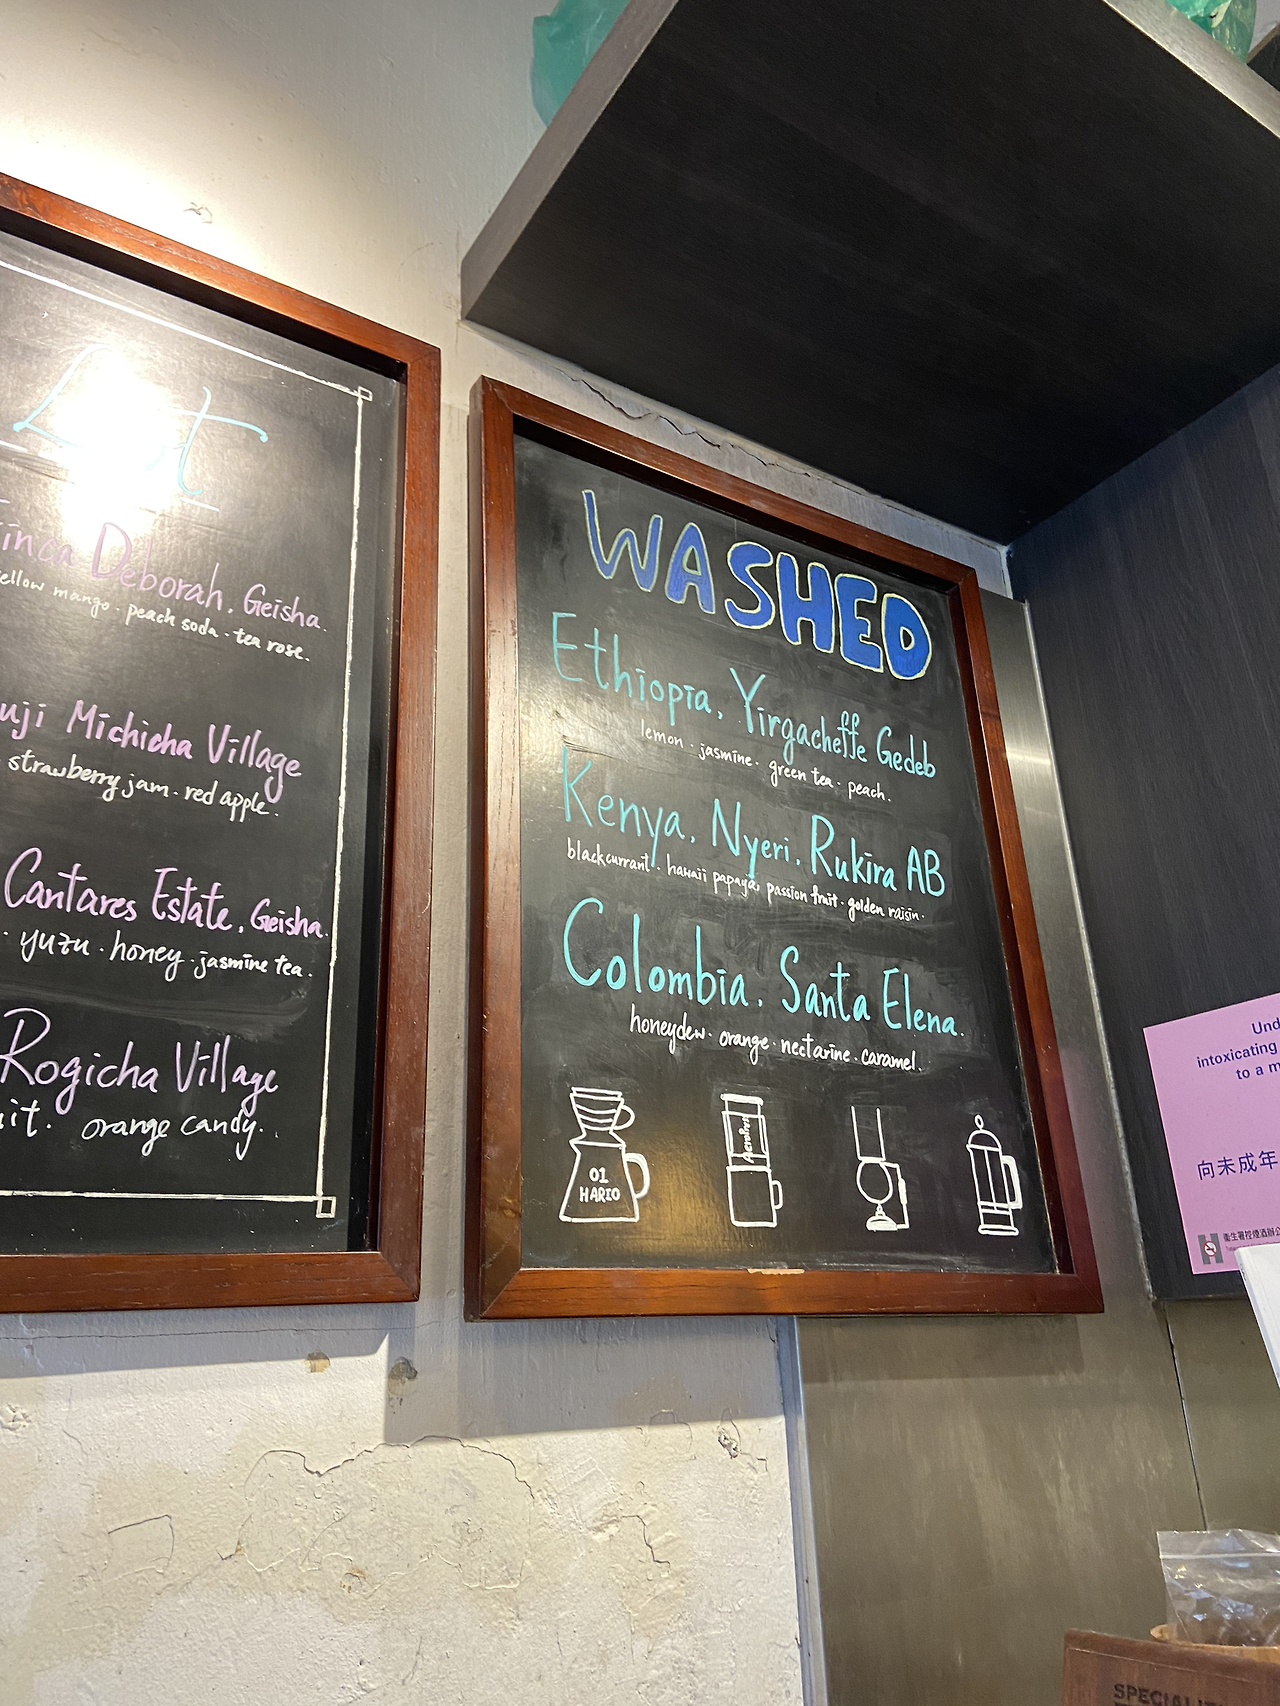 List
Deborah. Geisha.
yellow mango · peach soda · tea rose.
Michicha Village
strawberry jam · red apple.
Cantares Estate, Geisha.
· yuzu · honey · jasmine tea.
Rogicha Village
orange candy.
WASHED
Ethiopia, Yirgacheffe Gedeb
lemon · jasmine · green tea · peach.
Kenya, Nyeri, Rukira AB
blackcurrant · hawaii papaya, passion fruit · golden raisin.
Colombia. Santa Elena.
honeydew · orange · nectarine · caramel.
01
HARIO
AeroPress
intoxicating
to a
向未成年
衛生署控煙酒辦